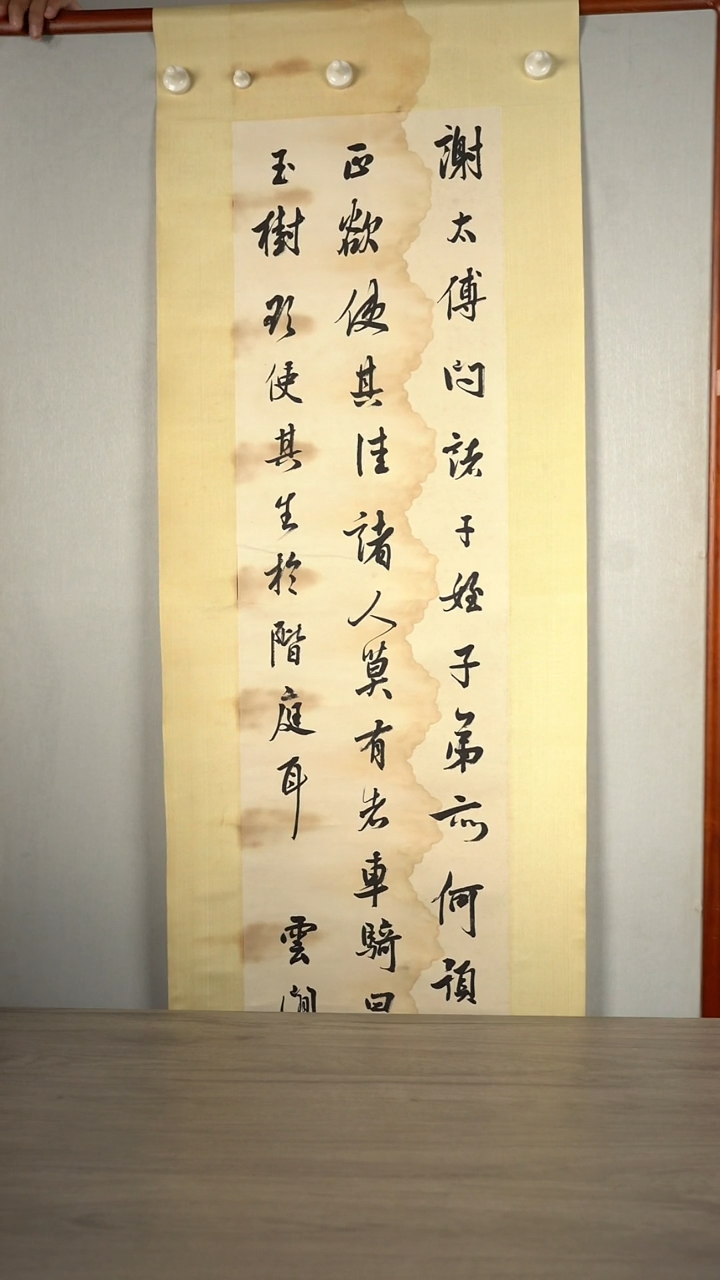 謝太傅問諸子姪子弟亦何預
正欲使其佳諸人莫有者車騎曰
玉樹欲使其生於階庭耳 雲